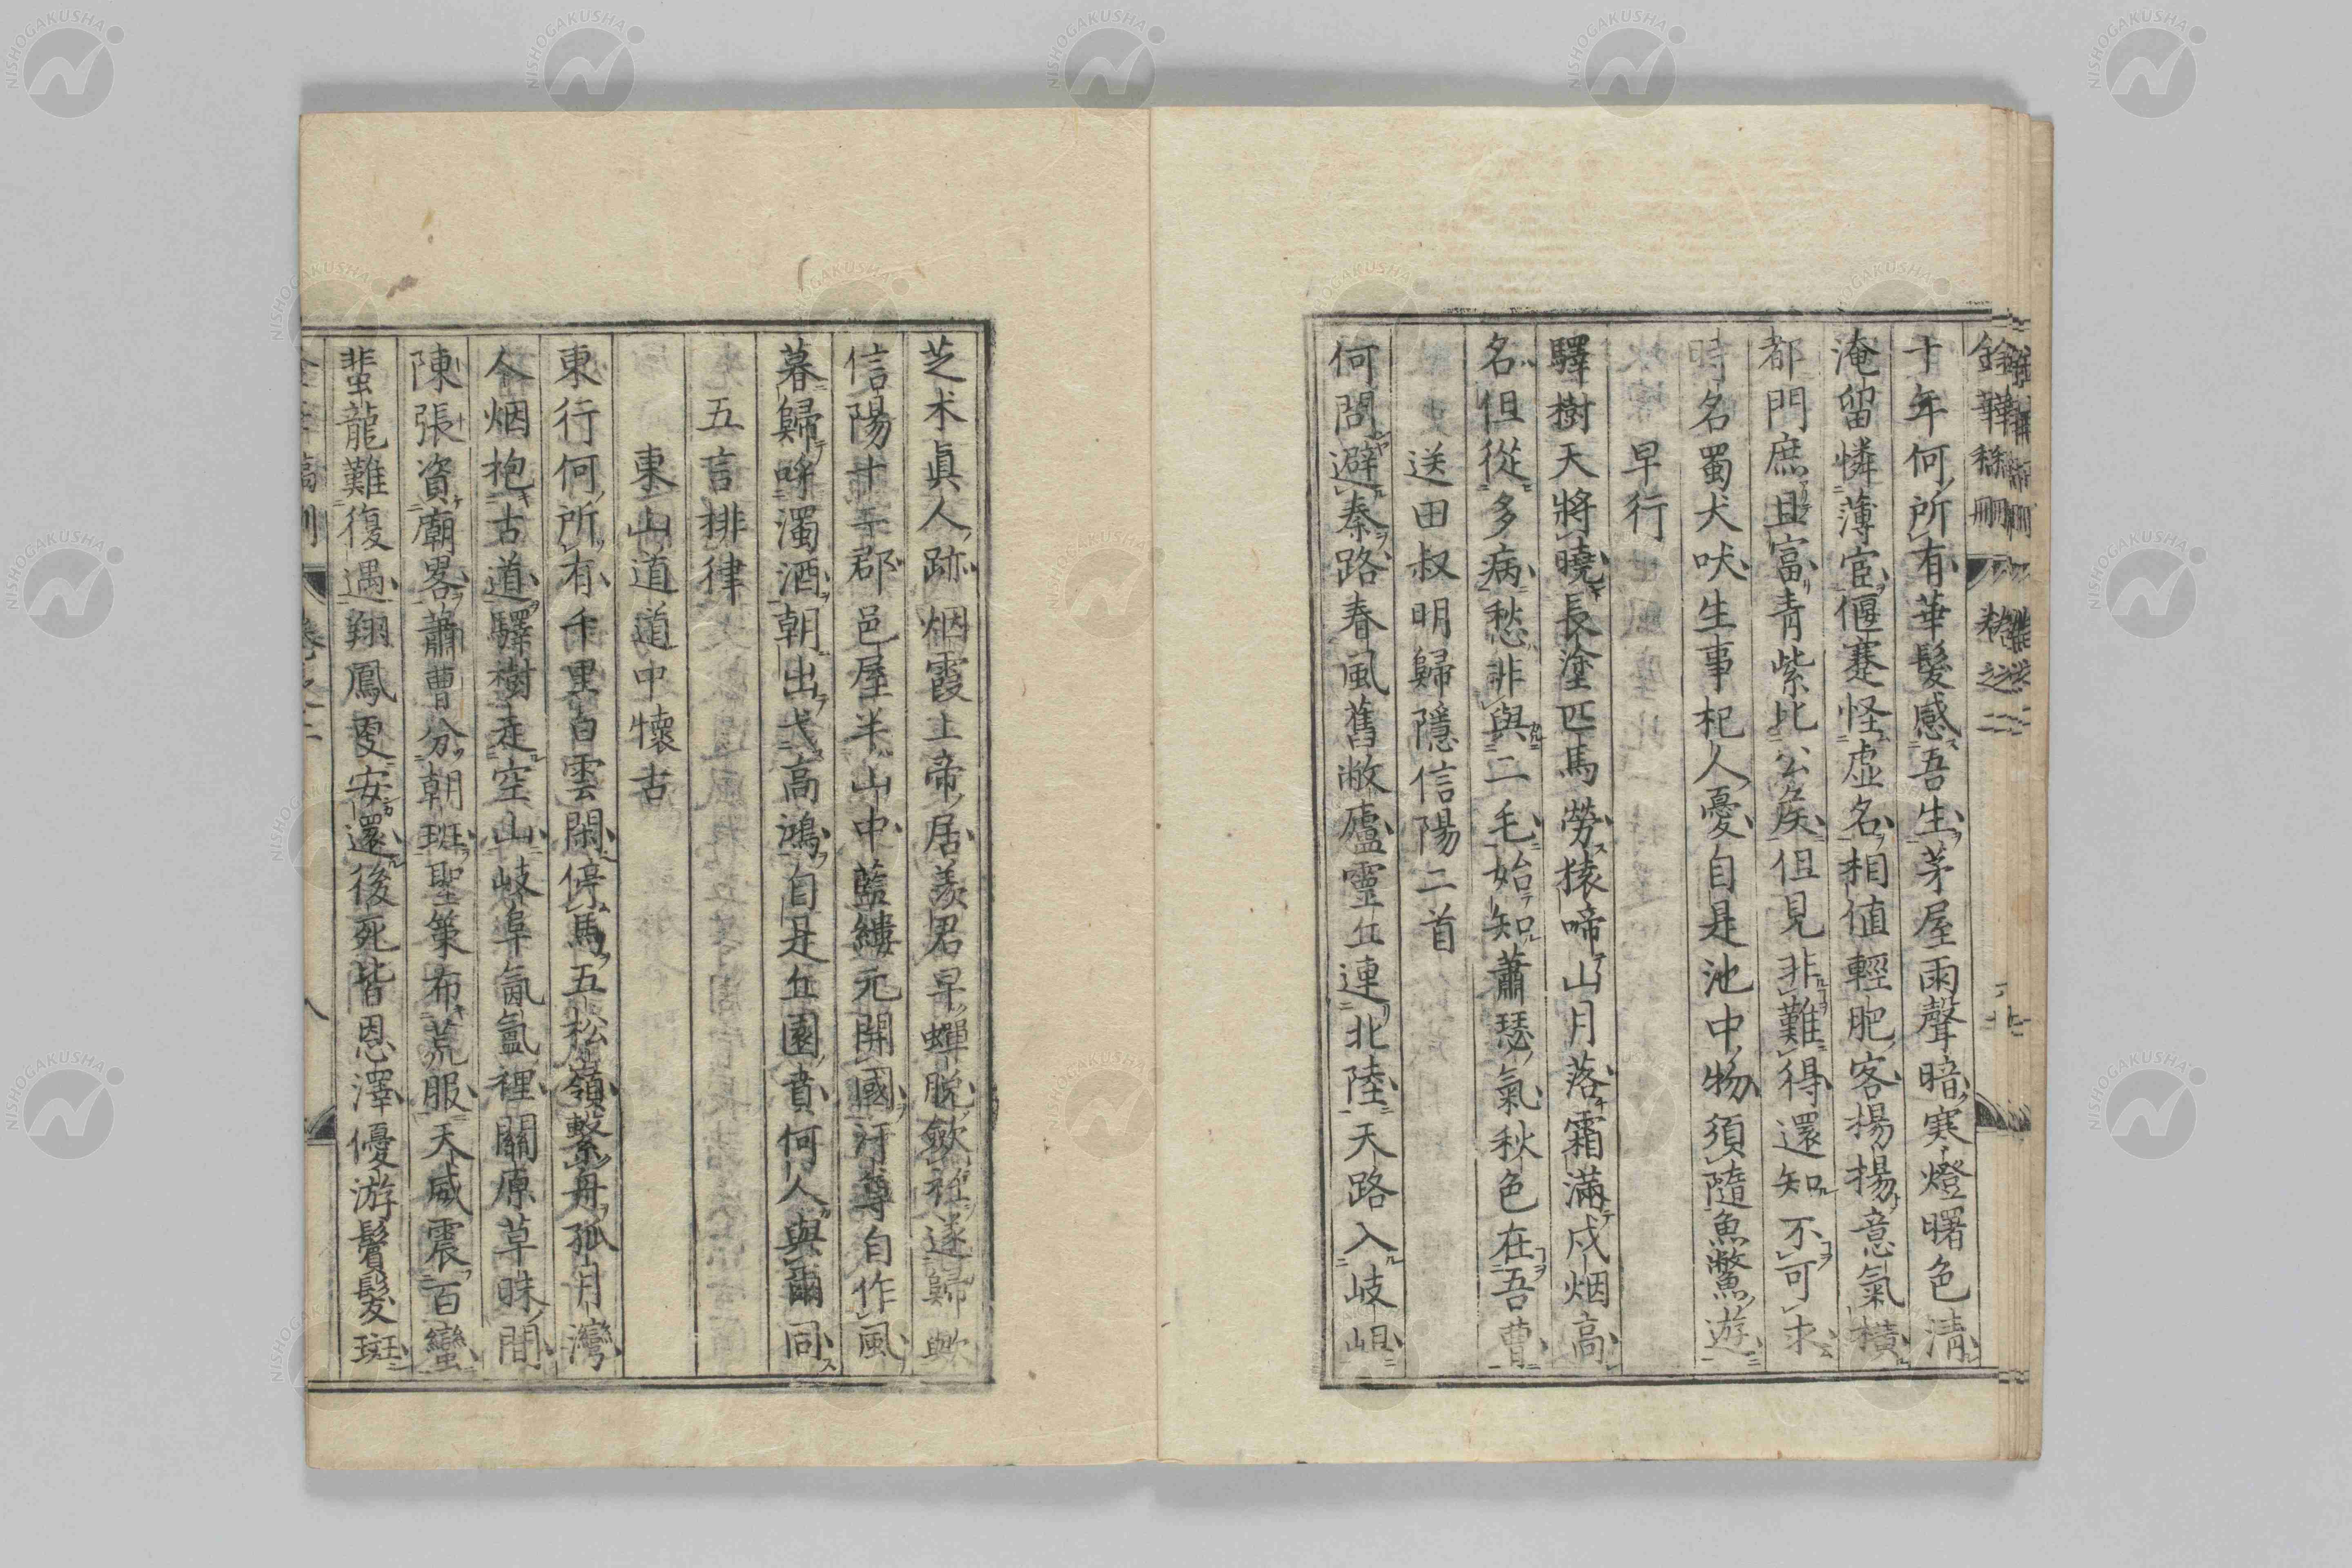 十年何所有華髮感吾生茅屋雨聲暗寒燈曙色淸
淹留憐薄宦偃蹇怪虛名相値輕肥客揚揚意氣橫
都門庶且富靑紫比公矦但見非難得還知不可求
時名蜀犬吠生事杞人憂自是池中物須隨魚鱉遊
早行
驛樹天將曉長塗匹馬勞猿啼山月落霜滿戍烟高
名但從多病愁非與二毛始知蕭瑟氣秋色在吾曹
送田叔明歸隱信陽二首
何問避秦路春風舊敝廬靈丘連北陸天路入岐岨
芝朮眞人跡烟霞上帝居羨君早蟬脫歛衽遂歸歟
信陽十千郡邑屋半山中藍縷元開國汙尊自作風
暮歸呼濁酒朝出弋高鴻自是丘園賁何人與爾同
五言排律
東山道道中懷古
東行何所有千里白雲閑停馬五松嶺繫舟孤月灣
人烟抱古道驛樹走空山岐阜氤氳裡關原草昧間
陳張資廟畧蕭曹分朝班聖策布荒服天威震百蠻
蜚龍難復遇翔鳳更安還後死皆恩澤優游鬢髮斑
NISHOGAKUSHA